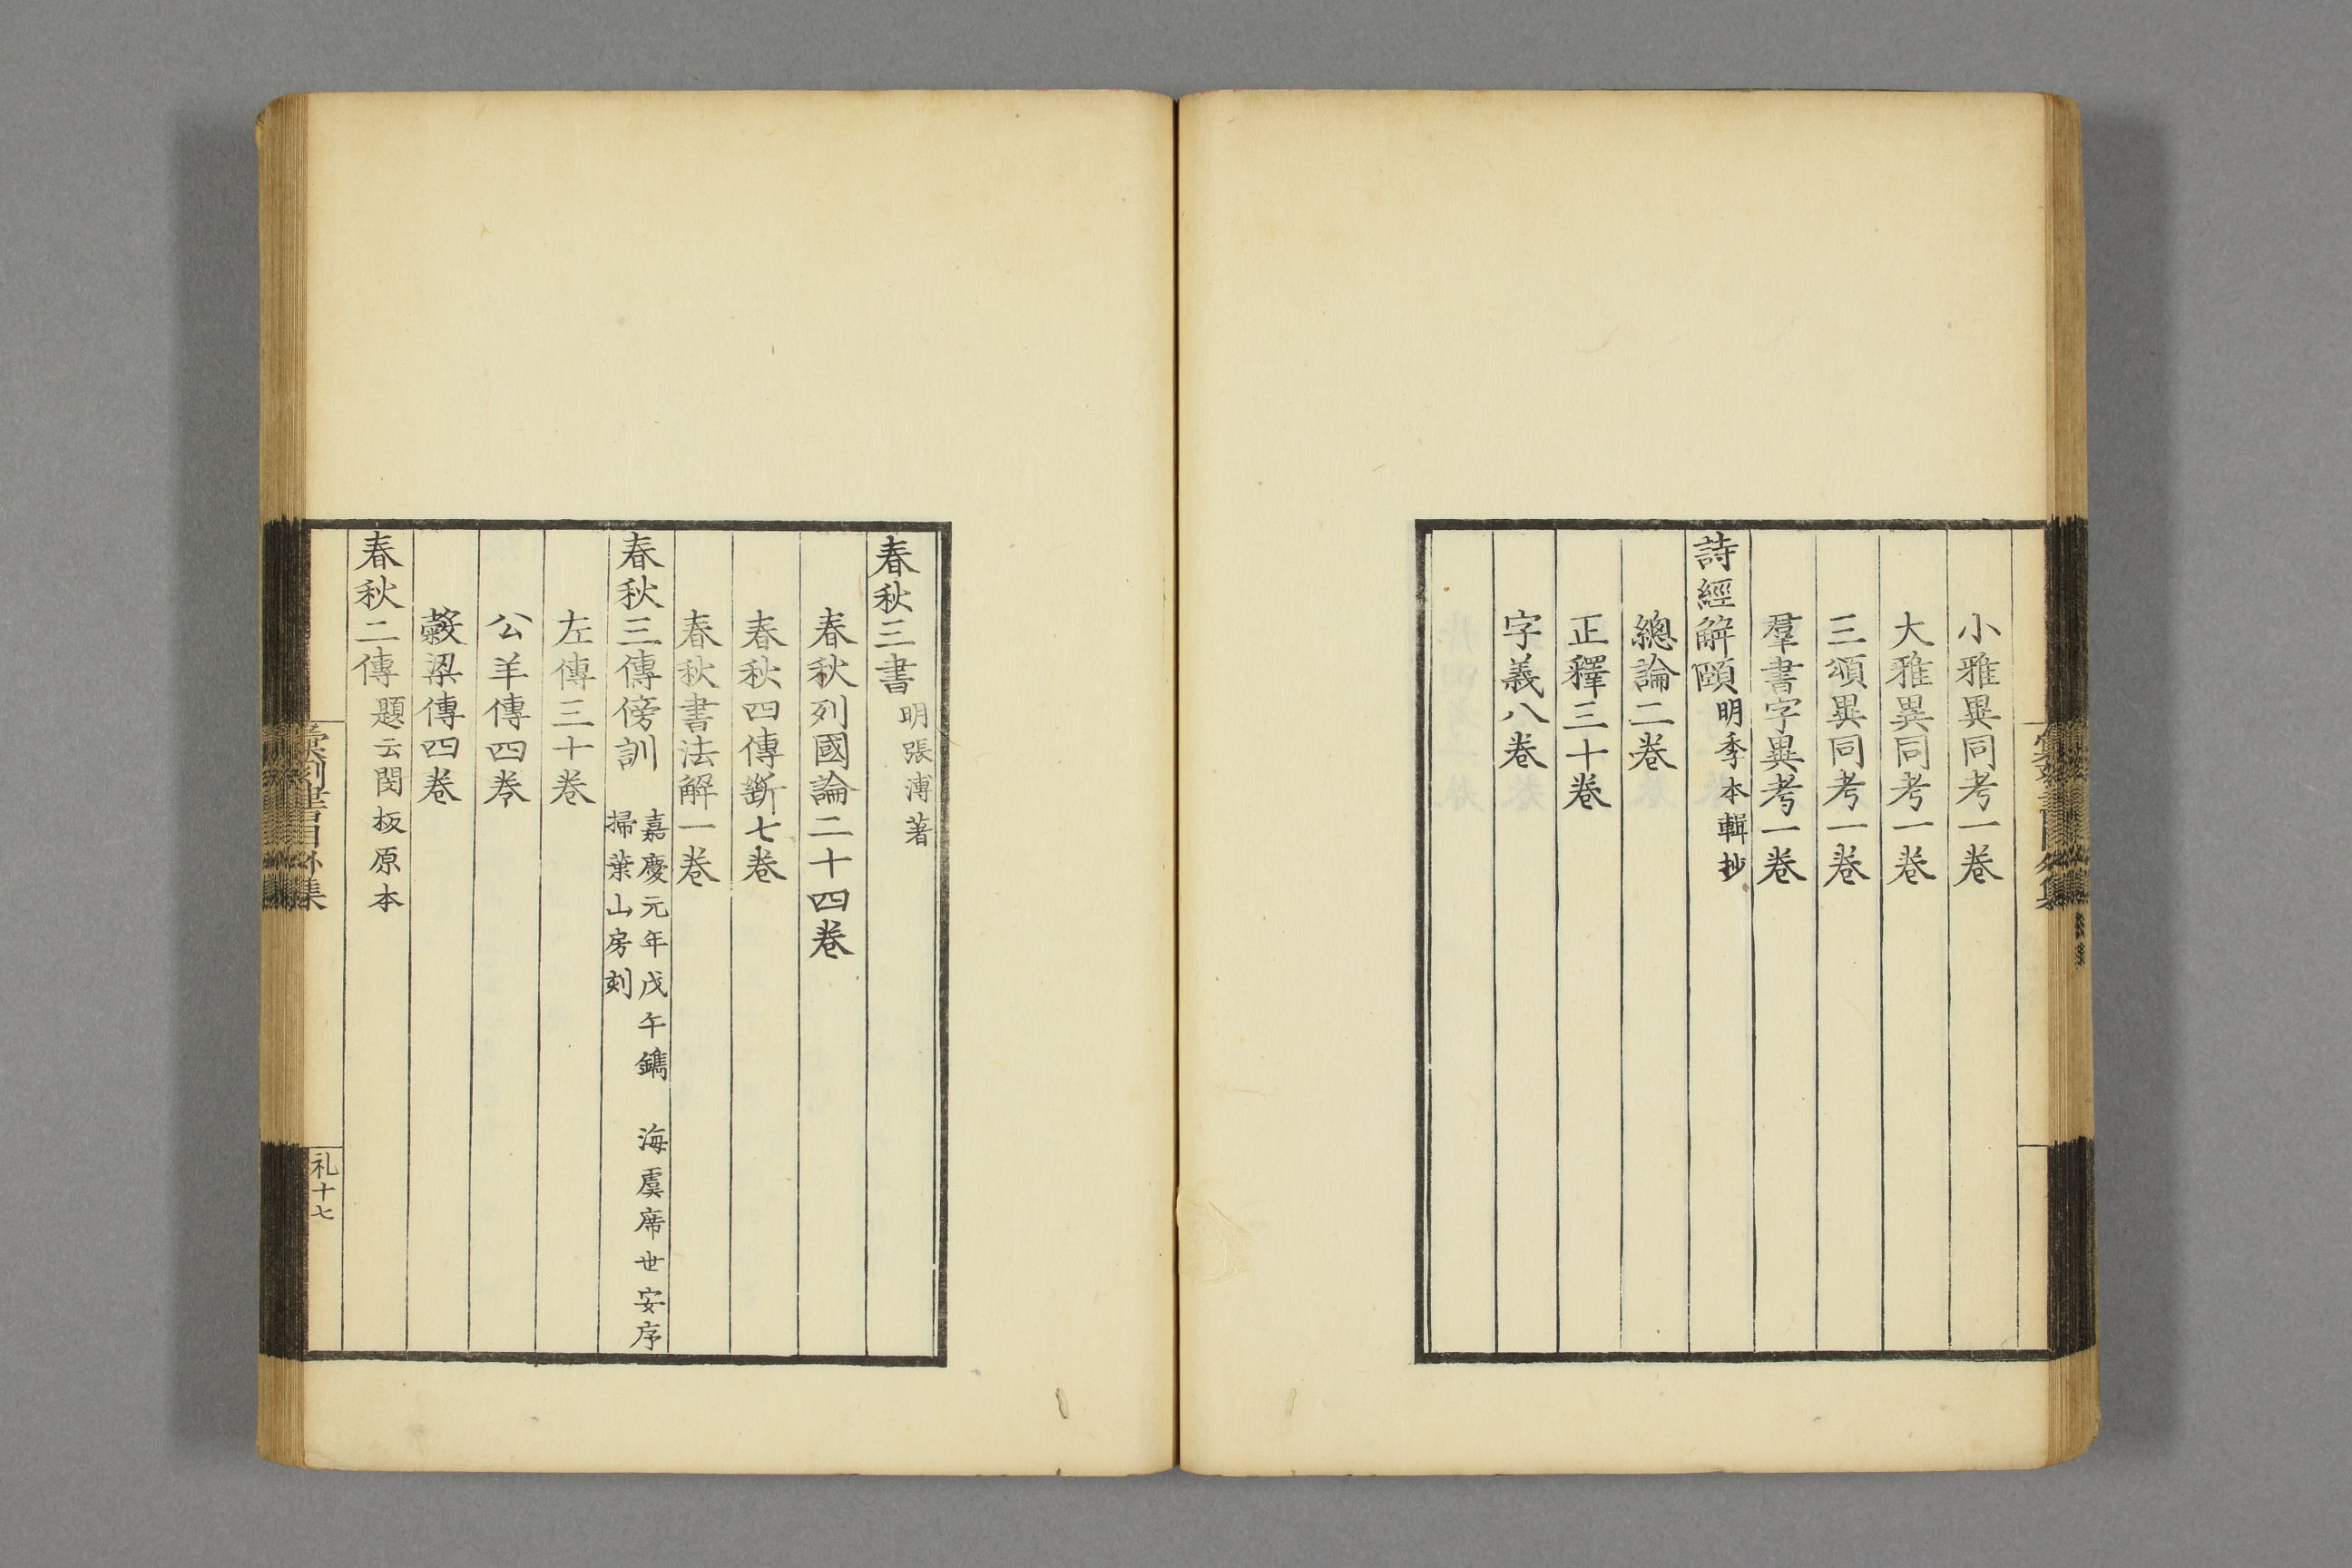 小雅異同考一卷
大雅異同考一卷
三頌異同考一卷
羣書字異考一卷
詩經解頤 明季本輯抄
總論二卷
正釋三十卷
字義八卷
春秋三書 明張溥著
春秋列國論二十四卷
春秋四傳斷七卷
春秋書法解一卷
春秋三傳傍訓 嘉慶元年戊午鐫 海虞席世安序
掃葉山房刻
左傳三十卷
公羊傳四卷
穀梁傳四卷
春秋二傳 題云閔板原本
彙刻書目外集
礼十七